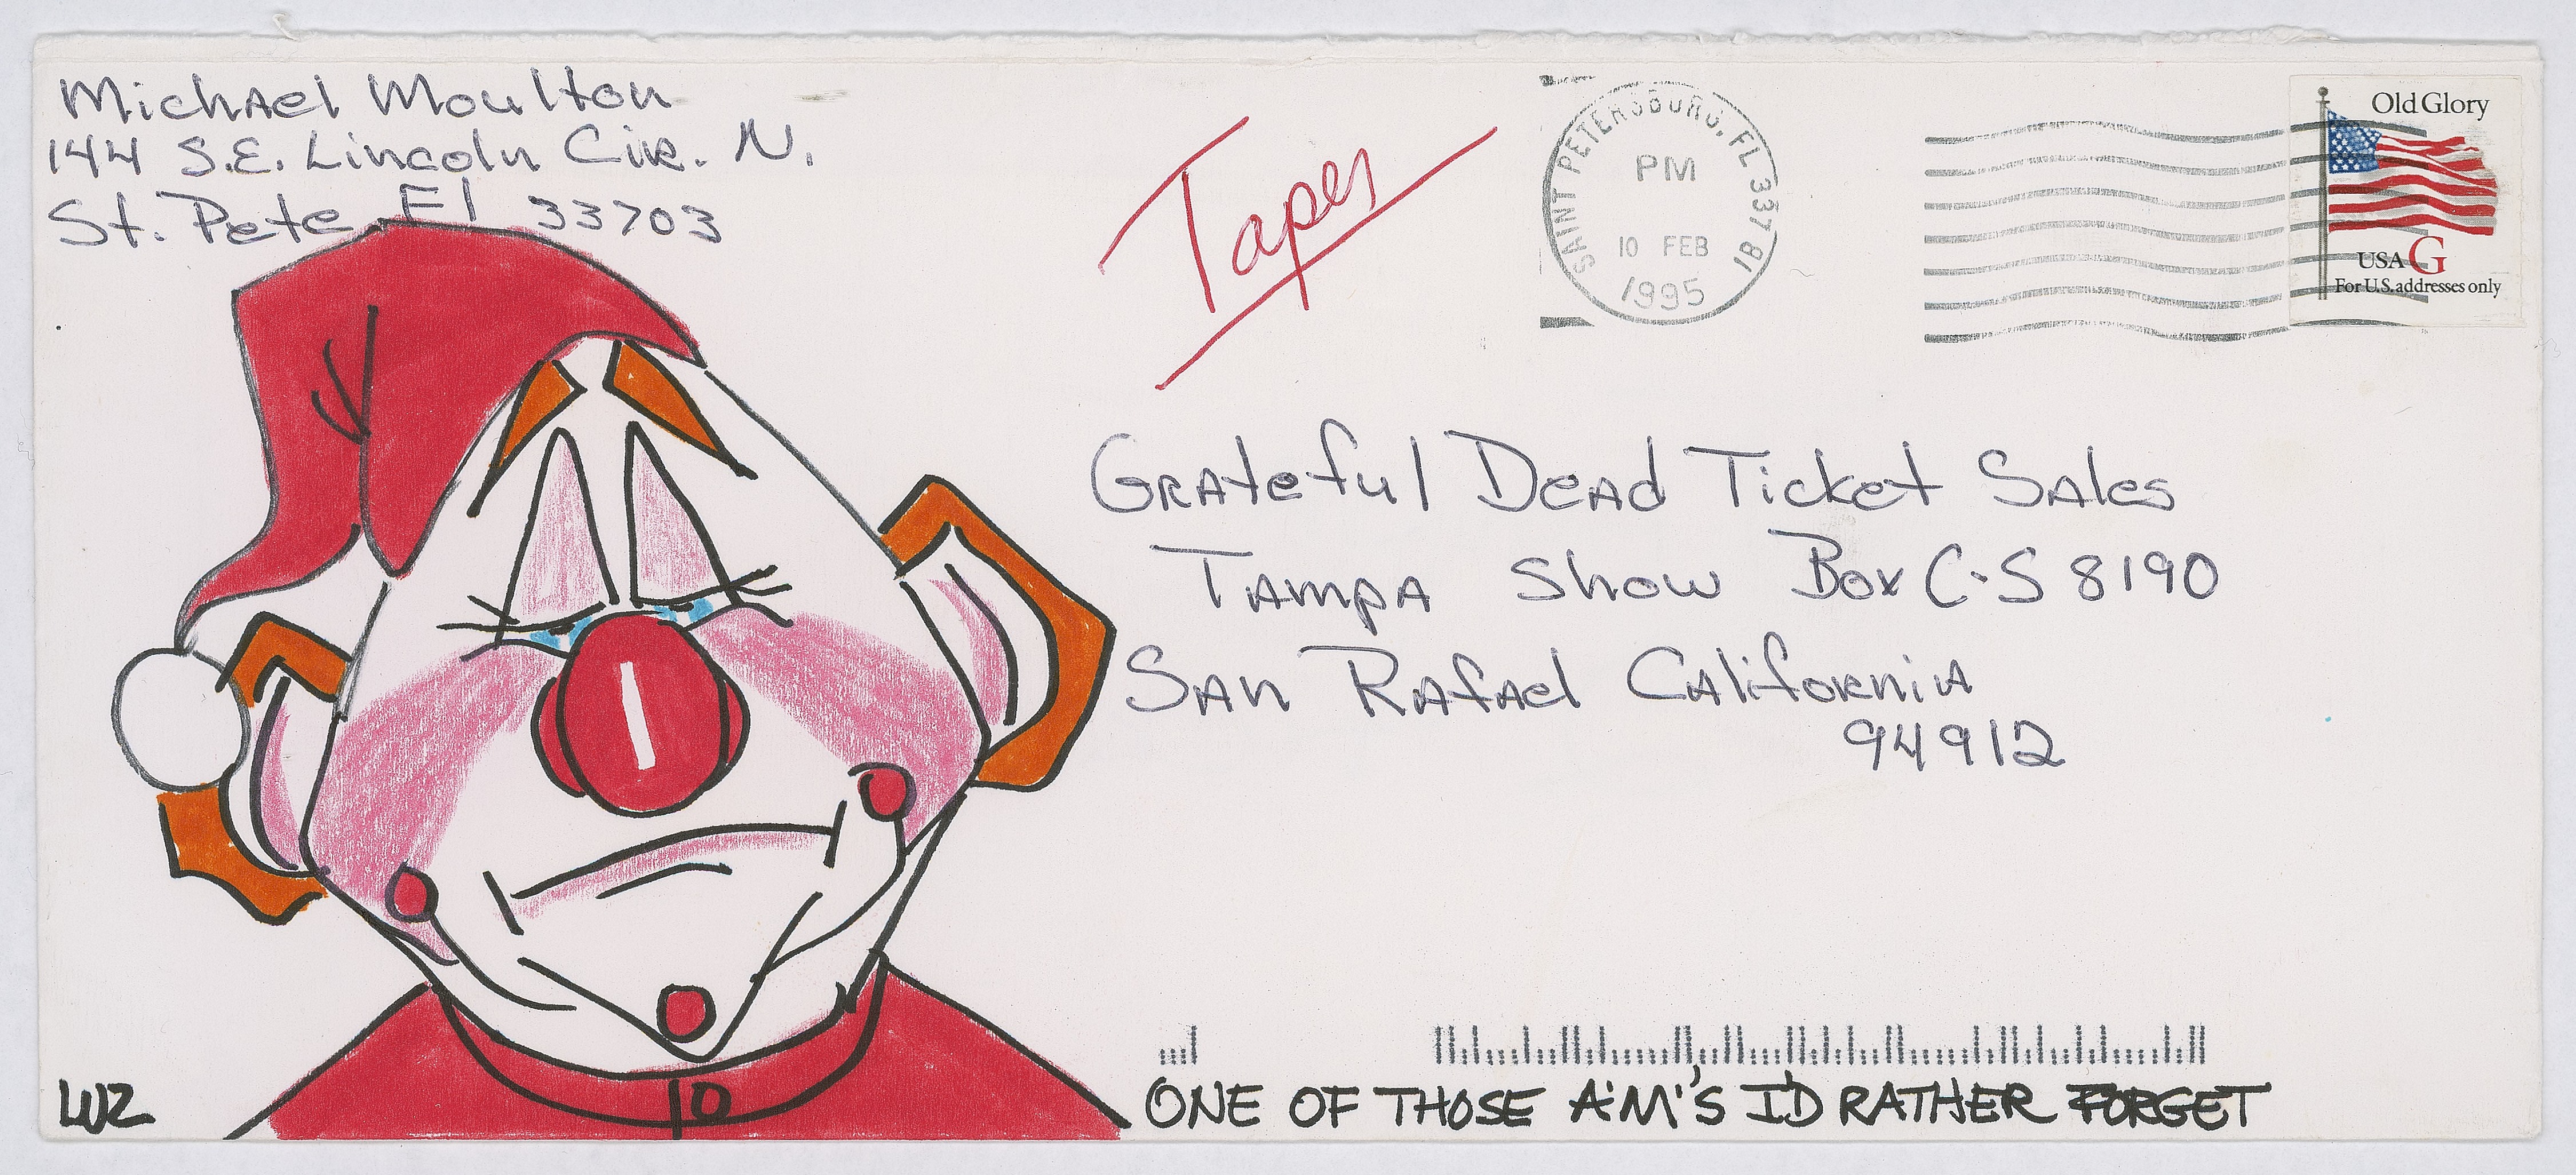 Michael Moulton
144 S.E. Lincoln Cir. N.
St. Pete Fl 33703
Tapes
SAINT PETERSBURG, FL 33781
PM
10 FEB
1995
Old Glory
USA G
For U.S. addresses only
Grateful Dead Ticket Sales
Tampa Show Box C-S 8190
San Rafael California
94912
LUZ
ONE OF THOSE A'M'S I'D RATHER FORGET